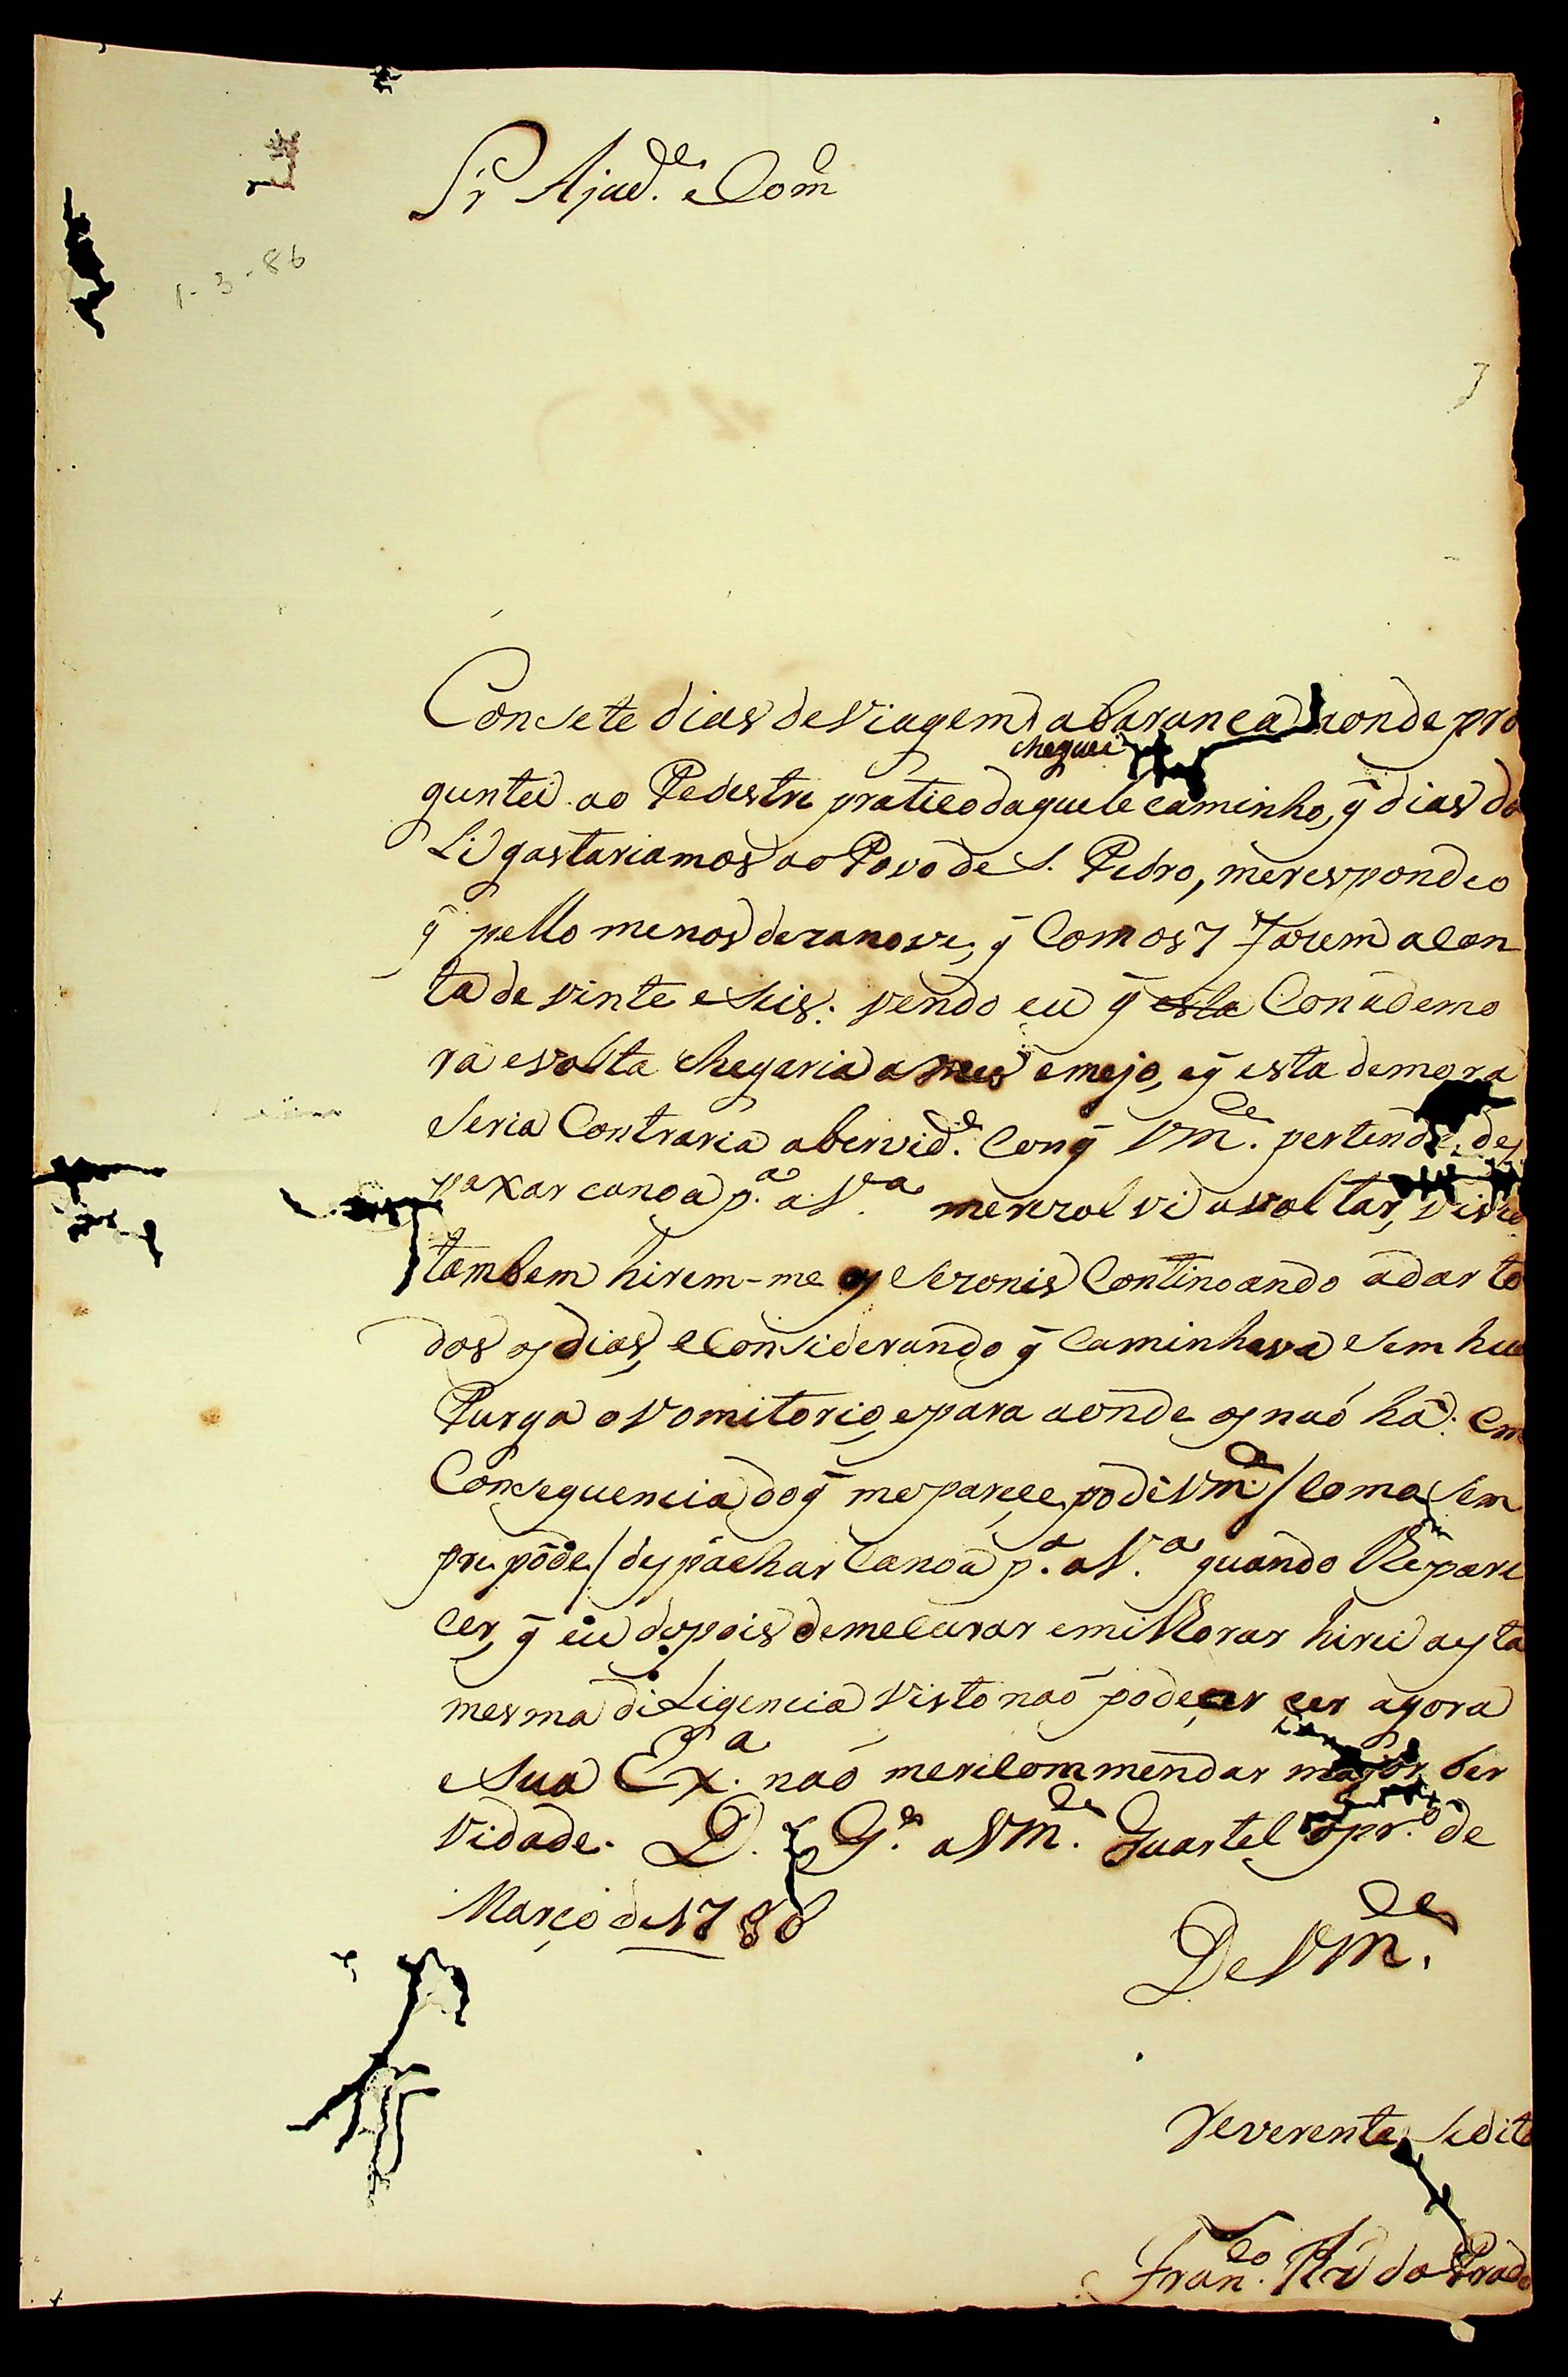 Sr Ajud.e e Com.e
1-3-86
Con sete dias de viagem a baranca honde pro
cheguei
guntei ao Pedestre pratico daquele caminho, q̃ dias da
li gastariamos ao Povo de S. Pedro, me respondeo
q̃ pello menos dezanove, q̃ Com os 7 fazem a con
ta de vinte e seis: vendo eu q̃ esta Con a demo
ra e volta chegaria a mes e mejo, e q̃ esta demora
seria Contraria a bervid.e con q̃ Vm.ce pertende des
paxar canoa p.a a V.a me rezolvi a voltar, visto
tambem hirem-me os sezonis Continoando a dar to
dos os dias, e Considerando q̃ Caminhava sem hua
Purga o Vomitorio, e para aonde os naõ há: em
Consequencia do q̃ me parece, pode Vm.ce / como sem
pre pode / despachar Canoa p.a a V.a quando lhe pare
cer, q̃ eu depois de me curar e milhorar hirei a esta
mesma diligencia visto naõ poder ser agora
e Sua Ex.a naõ me recommendar major ber
vidade. D. G.e a Vm.ce Quartel o pr.o de
Março de 1786
De Vm.ce
Reverente Sudito
Fran.co Roiz do Prado